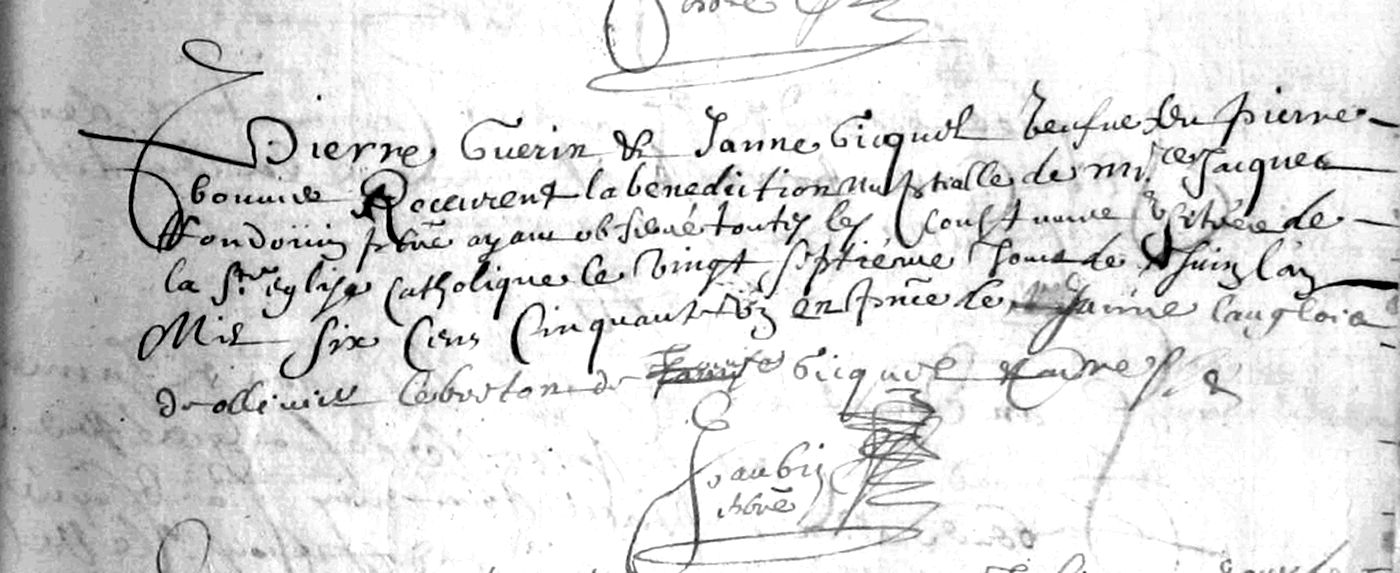 Pierre Guerin & Janne Gicquel veufue du pierre
bouuier Receurent la benediction nuptialle de mi.re Jacques
ffondouin pbre ayant obserué toutes les Coustume
la Ste eglise Catholique le vingt septiéme Jour de Juin l'an
Mil six Cens Cinquant en pnce de Janne langlois
de olliuier lebreton de Gicquel & autres. &
J aubin